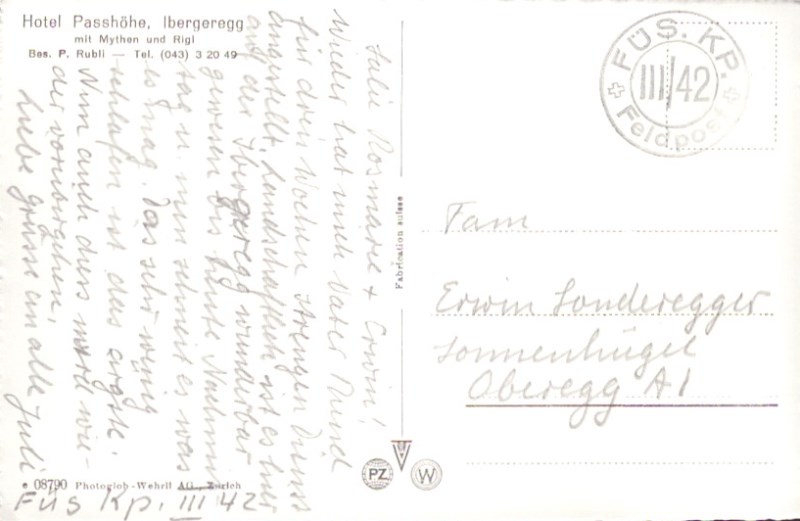 Hotel Passhöhe, Ibergeregg
mit Mythen und Rigi
Bes. P. Rubli — Tel. (043) 3 20 49
Salü Rosmarie + Erwin!
Wieder hat mich Vater Bund
für drei Wochen strengen Dienst
angestellt. Landschaftlich ist es hier
auf der Ibergeregg wunderbar
gewesen bis heute Nachmit
tag u. nun schneit es was
es mag. Das sehr wenig
schlafen ist das ärgste.
Nun auch dies wird wie-
der vorübergehen.
Liebe Grüsse an alle Juli
Füs Kp. III 42
08790 Photoglob-Wehrli AG., Zürich
Fabrication suisse
FÜS. KP.
III/42
Feldpost
Fam
Erwin Sonderegger
Sonnenhügel
Oberegg AI
PZ
W